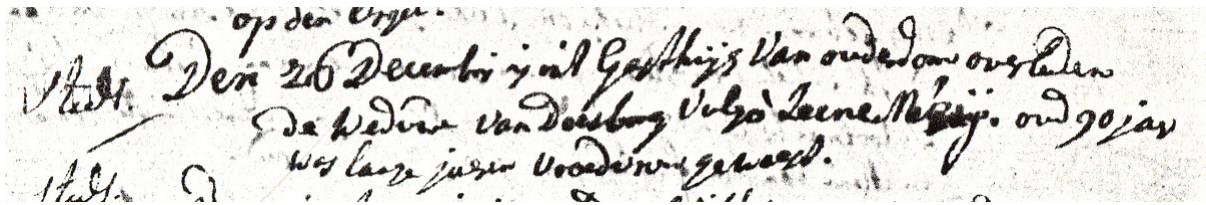 op den Orgel.
Stadt. Den 26 Decembris in het Gasthuijs Van ouderdom overleden
de Weduwe van Doesborg Vulgò Leine Meij. oud 90 jar
was lange jaren Vroedvrouw geweest.
Stadt.